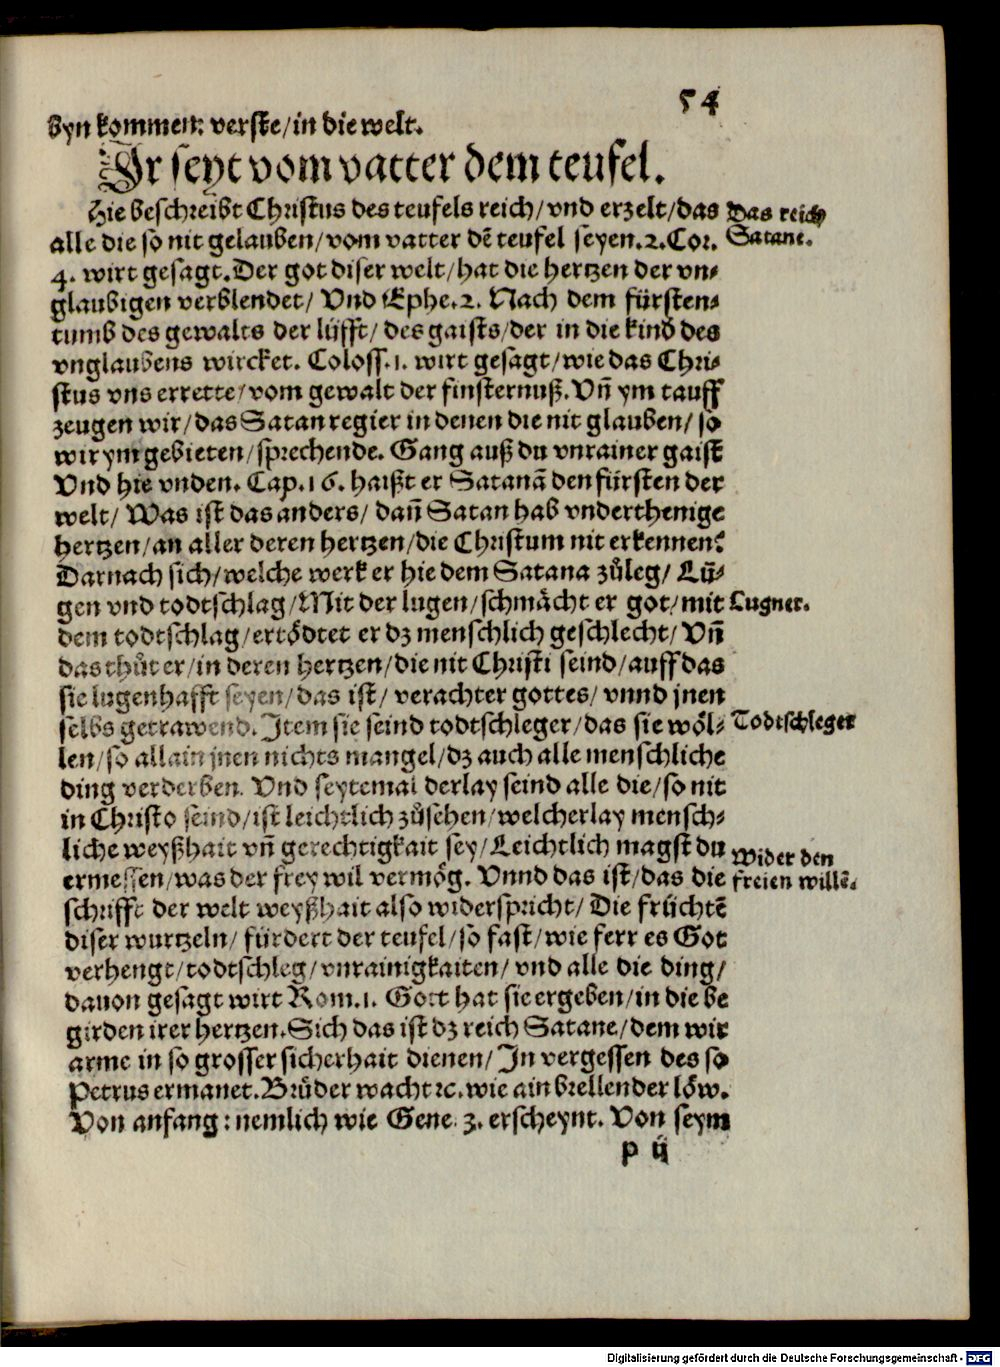 54
byn kommen: verste/in die welt.
Ir seyt vom vatter dem teufel.
Hie beschreibt Christus des teufels reich/vnd erzelt/das
Das reich
alle die so nit gelauben/vom vatter dẽ teufel seyen.2.Cor.
Satane.
4. wirt gesagt.Der got diser welt/hat die hertzen der vn⸗
glaubigen verblendet/ Vnd Ephe.2. Nach dem fürsten⸗
tumb des gewalts der lüfft/ des gaists/der in die kind des
vnglaubens wircket. Coloss.1. wirt gesagt/wie das Chri⸗
stus vns errette/vom gewalt der finsternuß.Vñ ym tauff
zeugen wir/das Satan regier in denen die nit glauben/ so
wir ym gebieten/sprechende. Gang auß du vnrainer gaist
Vnd hie vnden. Cap.16. haißt er Satanã den fürsten der
welt/ Was ist das anders/ dañ Satan hab vnderthenige
hertzen/an aller deren hertzen/die Christum nit erkennen?
Darnach sich/welche werk er hie dem Satana zůleg/ Lü⸗
gen vnd todtschlag/Mit der lugen/schmächt er got/mit
Lugner.
dem todtschlag/ertödtet er dz menschlich geschlecht/ Vñ
das thůt er/in deren hertzen/die nit Christi seind/auff das
sie lugenhafft seyen/das ist/ verachter gottes/ vnnd jnen
selbs getrawend. Item sie seind todtschleger/das sie wöl⸗
Todtschleger
len/so allain jnen nichts mangel/dz auch alle menschliche
ding verderben. Vnd seytemal derlay seind alle die/so nit
in Christo seind/ist leichtlich zůsehen/welcherlay mensch⸗
liche weyßhait vñ gerechtigkait sey/Leichtlich magst du
Wider den
ermessen/was der frey wil vermög. Vnnd das ist/das die
freien willẽ.
schrifft der welt weyßhait also widerspricht/ Die früchtẽ
diser wurtzeln/ fürdert der teufel/so fast/wie ferr es Got
verhengt/todtschleg/vnrainigkaiten/vnd alle die ding/
dauon gesagt wirt Rom.1. Gott hat sie ergeben/in die be
girden irer hertzen.Sich das ist dz reich Satane/dem wir
arme in so grosser sicherhait dienen/ In vergessen des so
Petrus ermanet.Brüder wacht ꝛc.wie ain brellender löw.
Von anfang: nemlich wie Gene. 3. erscheynt. Von seym
p ij
Digitalisierung gefördert durch die Deutsche Forschungsgemeinschaft - DFG